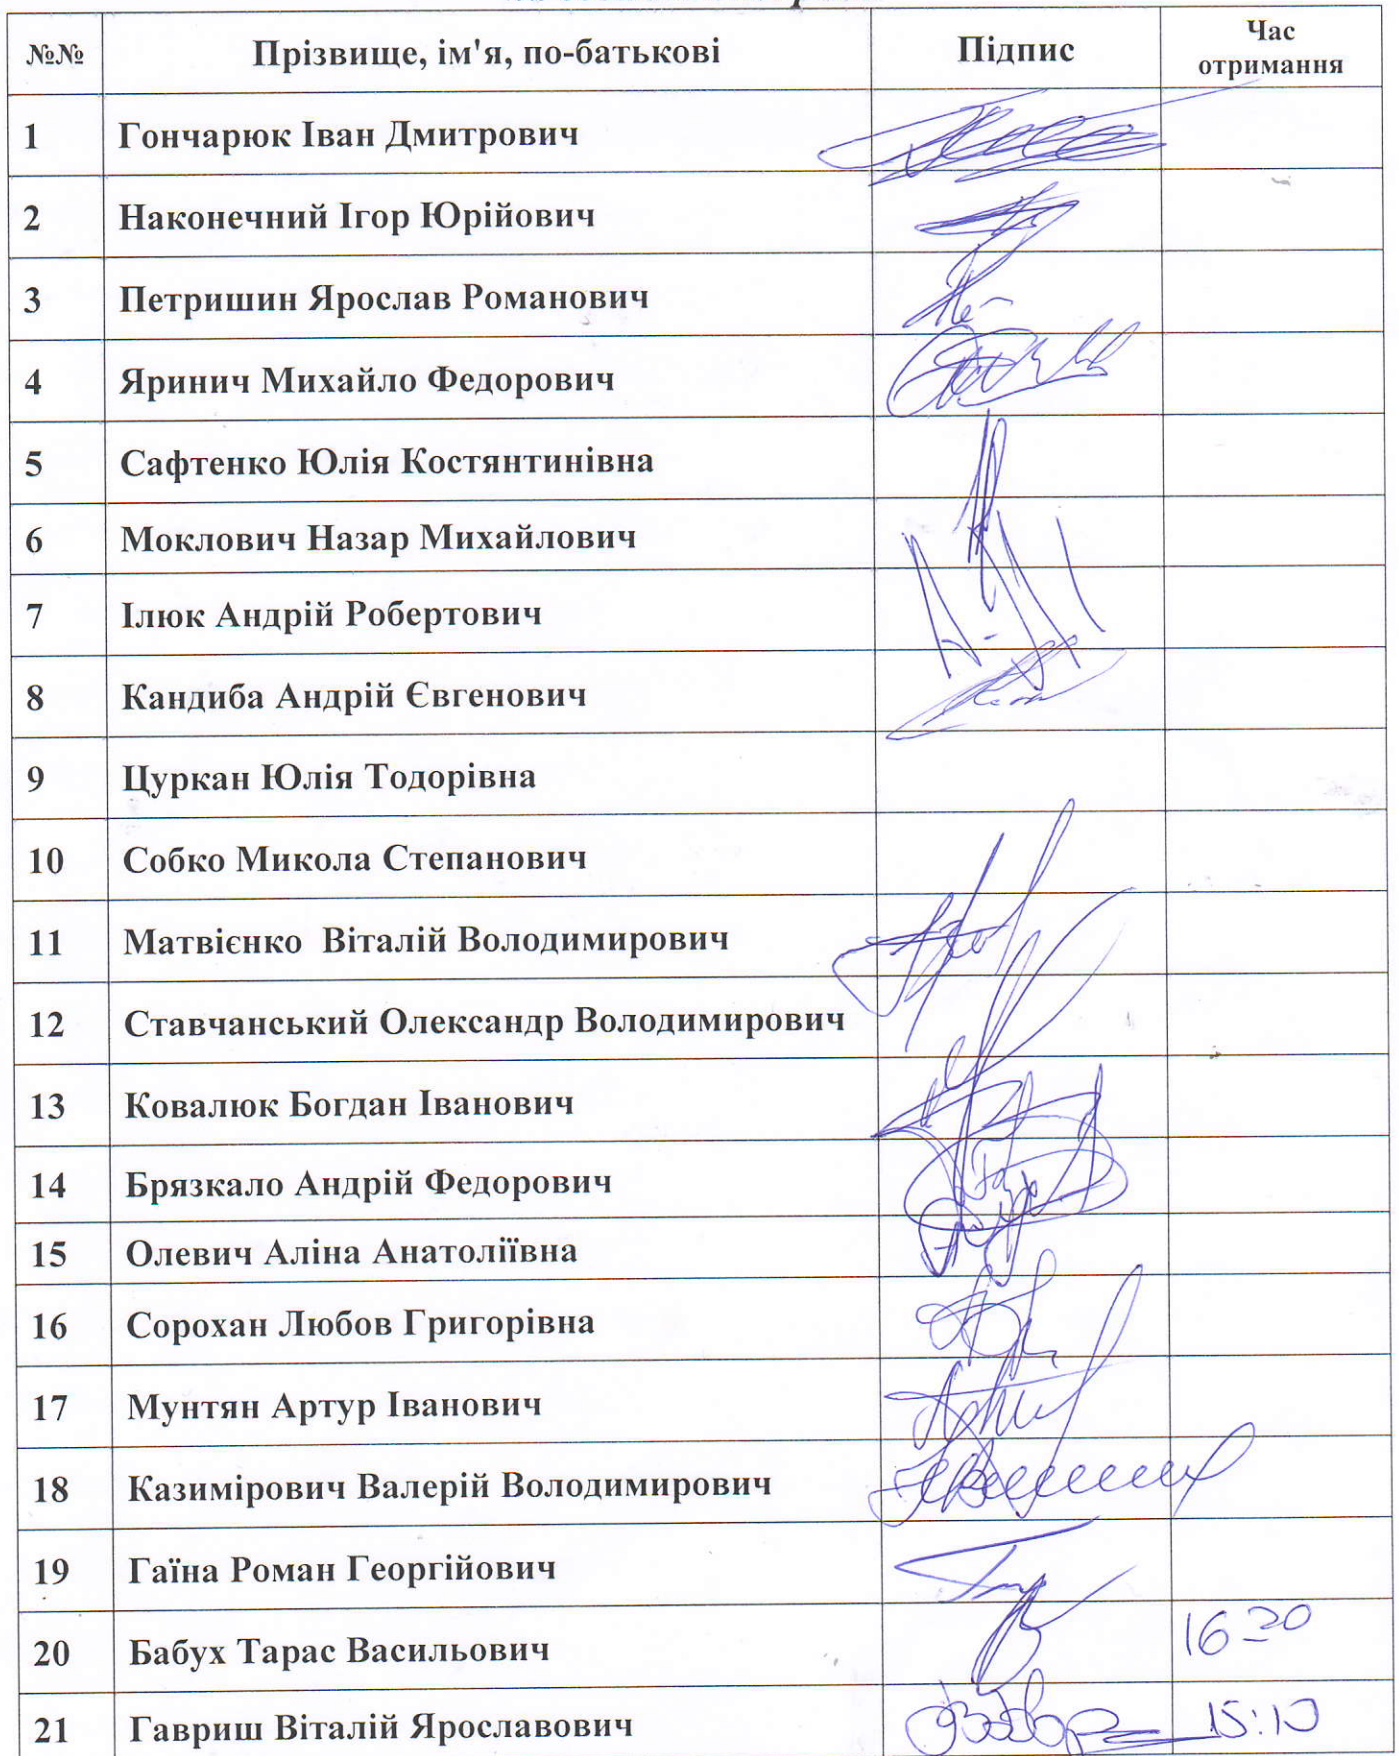 №№ Прізвище, ім'я, по-батькові Підпис Час отримання
1 Гончарюк Іван Дмитрович
2 Наконечний Ігор Юрійович
3 Петришин Ярослав Романович
4 Яринич Михайло Федорович
5 Сафтенко Юлія Костянтинівна
6 Моклович Назар Михайлович
7 Ілюк Андрій Робертович
8 Кандиба Андрій Євгенович
9 Цуркан Юлія Тодорівна
10 Собко Микола Степанович
11 Матвієнко Віталій Володимирович
12 Ставчанський Олександр Володимирович
13 Ковалюк Богдан Іванович
14 Брязкало Андрій Федорович
15 Олевич Аліна Анатоліївна
16 Сорохан Любов Григорівна
17 Мунтян Артур Іванович
18 Казимірович Валерій Володимирович
19 Гаїна Роман Георгійович
20 Бабух Тарас Васильович 16-20
21 Гавриш Віталій Ярославович 15:10